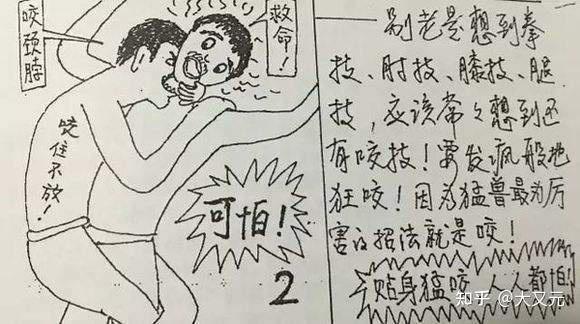 咬颈脖
救命！
咬住不放！
可怕！
2
别老是想到拳
技、肘技、膝技、腿
技，应该常々想到还
有咬技！要发疯般地
狂咬！因为猛兽最为厉
害的招法就是咬！
贴身猛咬 人人都怕！
知乎 @大又元